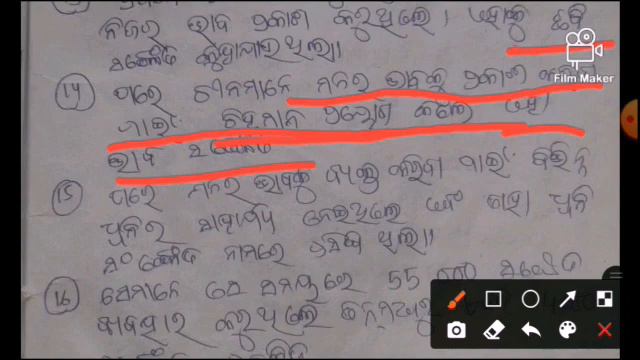 ନିଜର ଭାବ ପ୍ରକାଶ କରୁଥିଲେ। ଏହାକୁ ଛବି
ସଙ୍କେତ କୁହାଯାଉଥିଲା॥
14 ପରେ ଚୀନମାନେ ମନର ଭାବକୁ ପ୍ରକାଶ
ପାଇଁ ଚିହ୍ନମାନ ପ୍ରୟୋଗ କଲେ
ଭାବ ସଙ୍କେତ
15 ପରେ ମନର ଭାବକୁ ବ୍ୟକ୍ତ କରିବା ପାଇଁ ବିଭିନ୍ନ
ଧ୍ୱନିର ସାହାଯ୍ୟ ନେଇଥିଲେ ଏବଂ ତାହା ଧ୍ୱନି
ସଙ୍କେତ ନାମରେ ଥିଲା॥
16 ସେମାନେ ସେ ସମୟରେ 55,000 ସଙ୍କେତ
ବ୍ୟବହାର କରୁଥିଲେ
Film Maker